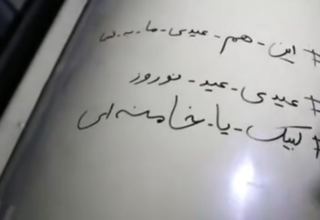 #این-هم-عیدی-ما-به-شما
#عیدی-عید-نوروز
#لبیک-یا-خامنه‌ای